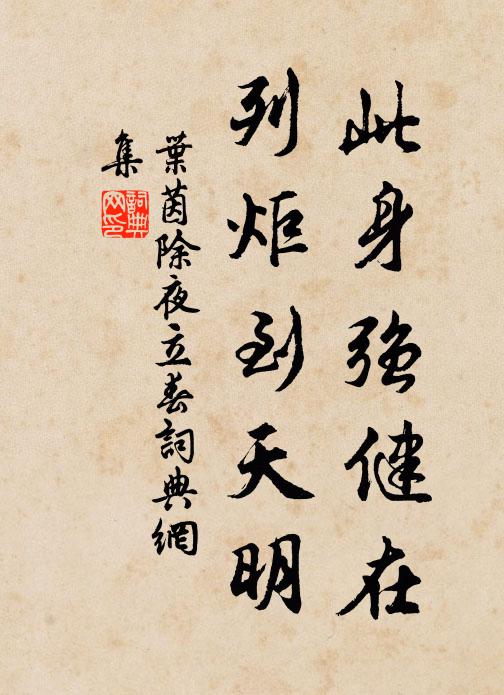 此身強健在
列炬到天明
葉茵除夜立春詞典網
集
詞典
网印